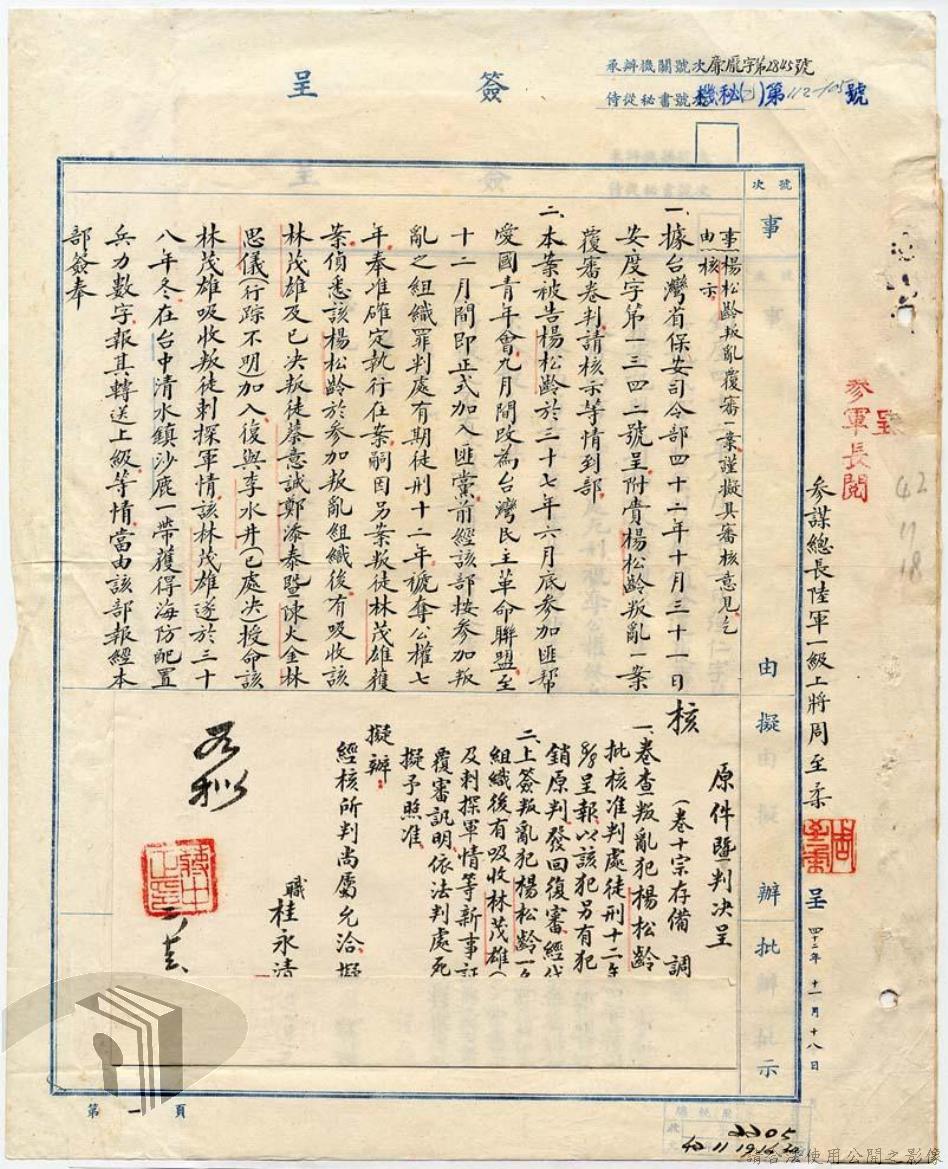 簽呈
承辦機關號次廉龐字第2845號
侍從秘書號次機秘(二)第112-105號
號次
事由擬由擬辦批辦批示
參謀總長陸軍一級上將周至柔
呈
四十二年十一月十八日
呈
參軍長閱
42
11
18
事由
楊松齡叛亂覆審一案謹擬具審核意見乞
核示
一、據台灣省保安司令部四十二年十月三十一日
安度字第一三四二號呈附賫楊松齡叛亂一案
覆審卷判請核示等情到部
二、本案被告楊松齡於三十七年六月底參加匪幫
愛國青年會九月間改為台灣民主革命聯盟至
十二月間即正式加入匪黨前經該部按參加叛
亂之組織罪判處有期徒刑十二年褫奪公權七
年奉准確定執行在案嗣因另案叛徒林茂雄獲
案偵悉該楊松齡於參加叛亂組織後有吸收該
林茂雄及已決叛徒蔡意誠鄭添泰暨陳火金林
思儀(行踪不明加入)復與李水井(已處決)授命該
林茂雄吸收叛徒刺探軍情該林茂雄遂於三十
八年冬在台中清水鎮沙鹿一帶獲得海防配置
兵力數字報其轉送上級等情當由該部報經本
部簽奉
核
原件暨判決呈
(卷十宗存備 調
一、卷查叛亂犯楊松齡
批核准判處徒刑十二年
呈報以該犯另有犯
銷原判發回復審經代
二、上簽叛亂犯楊松齡一名
組織後有吸收林茂雄(
及刺探軍情等新事証
覆審訊明依法判處死
擬予照准
擬辦
經核所判尚屬允洽擬
職桂永清
如擬
蔣中正印
第一頁
2205
請合法使用公開之影像